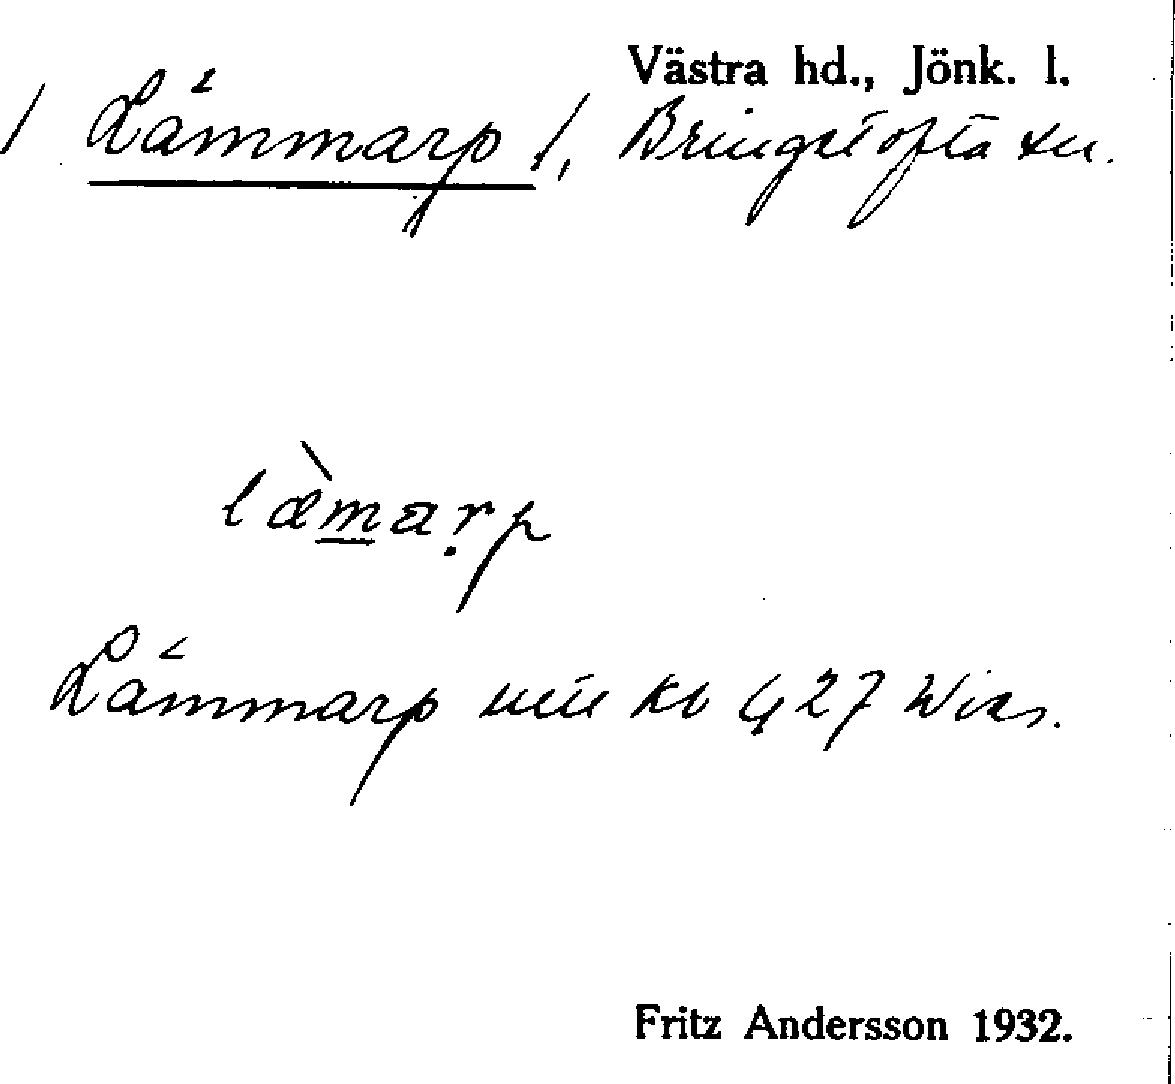 Västra hd., Jönk. l.
/ Lämmarp /, Bringetofta sn.
læ̀marp
Lämmarp
Fritz Andersson 1932.